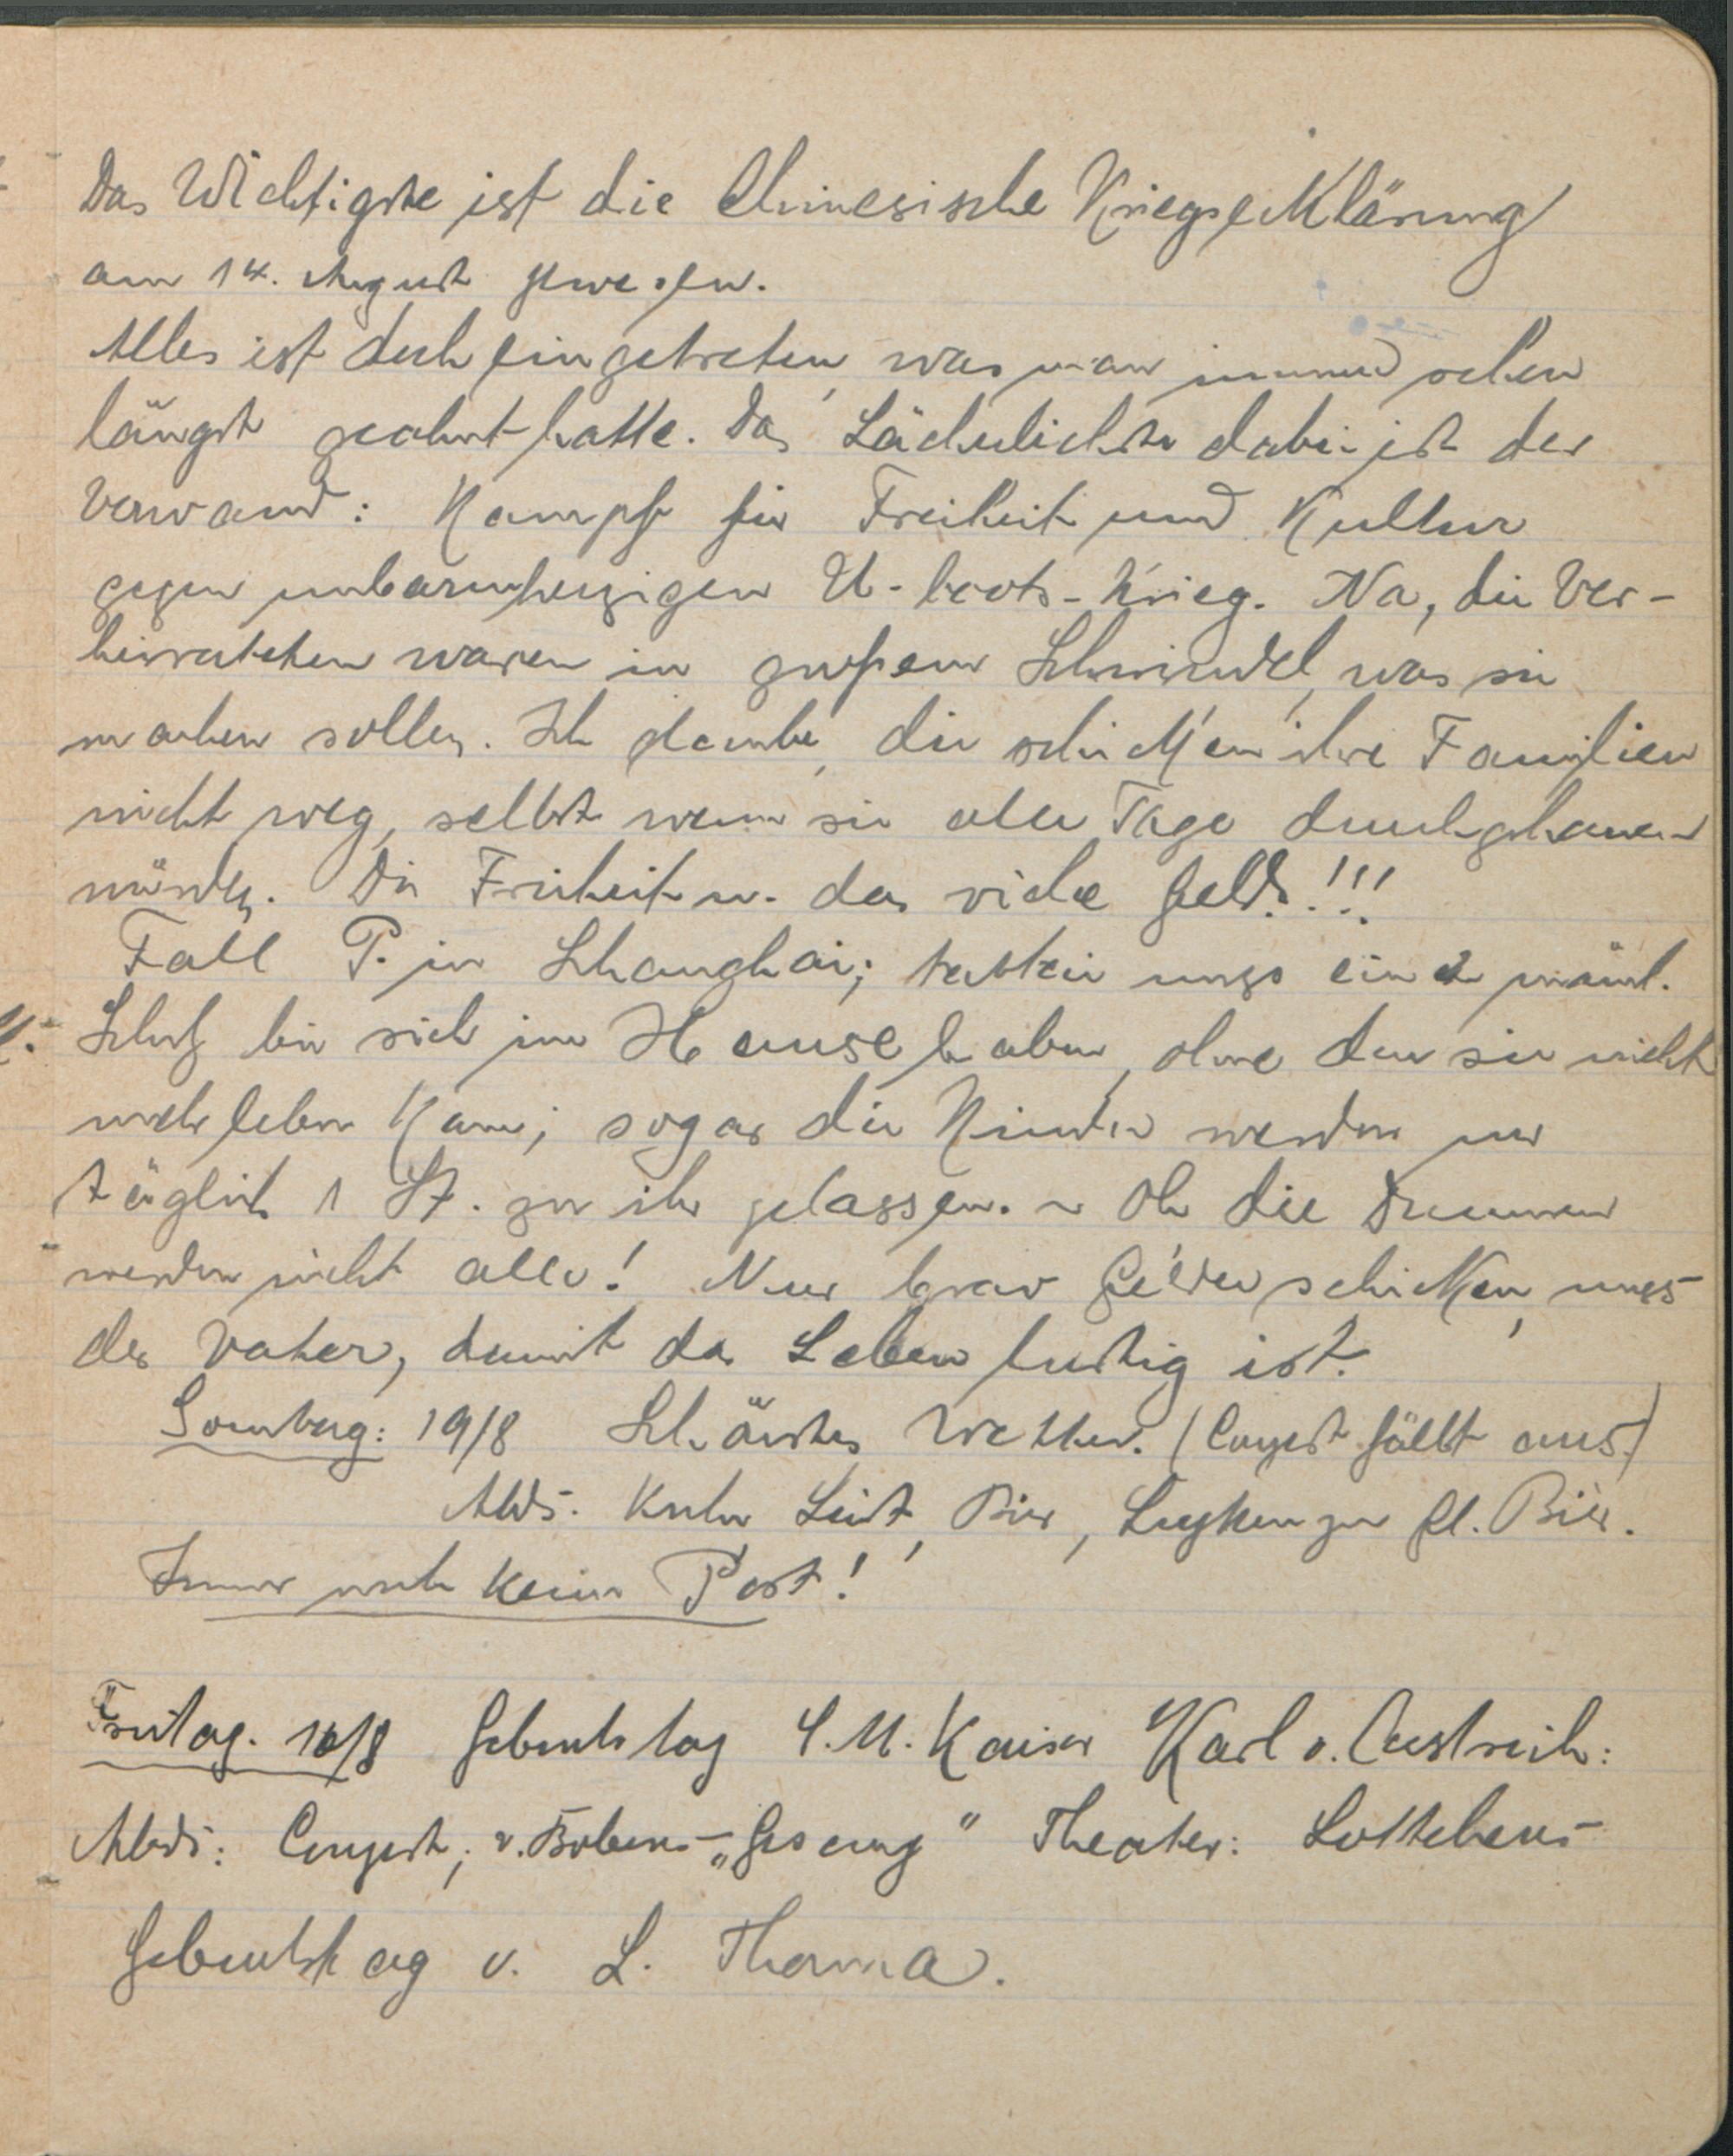 Das Wichtigste ist die Chinesische Kriegserklärung
am 14. August gewesen.
Alles ist doch eingetreten, was man immer schon
längst geahnt hatte. Das Lächerlichste dabei ist der
Vorwand: Kampf für Freiheit und Kultur
gegen unbarmherzigen U-boots-Krieg. Na, die Ver-
heirateten waren in großem Schwindel, was sie
machen sollen. Ich glaube, die schicken ihre Familien
nicht weg, selbst wenn sie alle Tage durchgehauen
würden. Die Freiheit u. das viele Geld!!!
Fall P. in Schanghai; muss einen männl.
Schutz bei sich im Hause haben, ohne den sie nicht
mehr leben kann; sogar die Kinder werden nur
täglich 1 St. zu ihr gelassen. ~ Oh die Dummen
werden nicht alle! Nur brav Gelder schicken, muss
der Vater, damit das Leben lustig ist.
Sonntag: 19/8 Schönstes Wetter. (Conzert fällt aus)
Abds. Bier, zu Gl. Bier.
Immer noch keine Post!
Freitag. 18/8 Geburtstag S.M. Kaiser Karl v. Oestreich:
Abds: Conzert; v. "Gesang" Theater: Lottchens-
Geburtstag v. L. Thoma.